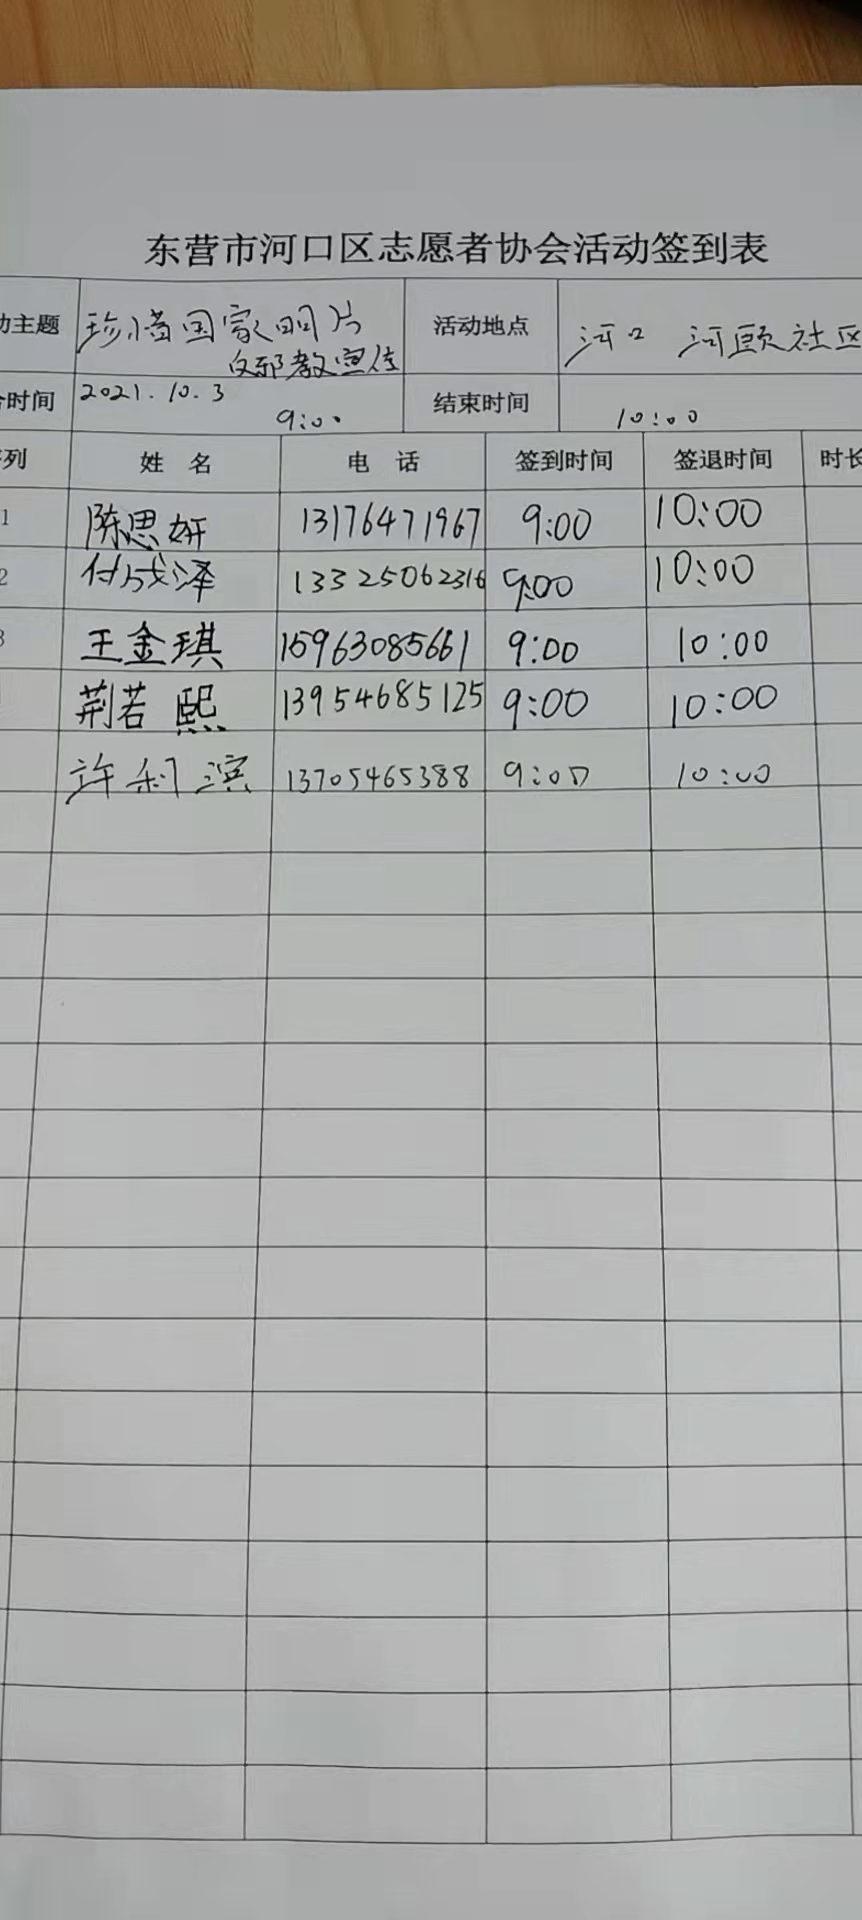 东营市河口区志愿者协会活动签到表
动主题 珍惜国家名片 反邪教宣传 活动地点 河口 河颐社区
时间 2021.10.3 9:00 结束时间 10:00
列 姓 名 电 话 签到时间 签退时间 时长
1 陈思妍 13176471967 9:00 10:00
2 付成泽 13325062316 9:00 10:00
3 王金琪 15963085661 9:00 10:00
荆若熙 13954685125 9:00 10:00
许利滨 13705465388 9:00 10:00